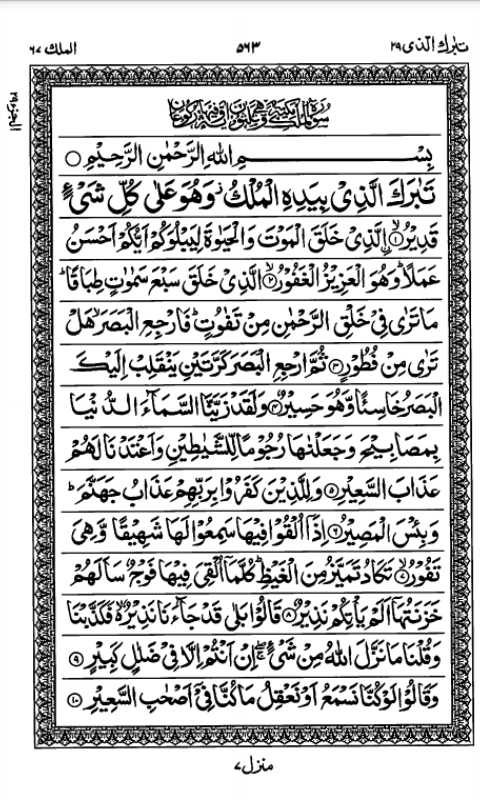 تبٰرك الذی ٢٩
٥٦٣
الملك ٦٧
الجزء ٢٩
بِسْمِ اللهِ الرَّحْمٰنِ الرَّحِيْمِ ○
تَبٰرَكَ الَّذِیْ بِيَدِهِ الْمُلْكُ ۫ وَهُوَ عَلٰى كُلِّ شَیْءٍ
قَدِيْرُ ۙ﴿١﴾ الَّذِیْ خَلَقَ الْمَوْتَ وَ الْحَيٰوةَ لِيَبْلُوَكُمْ اَيُّكُمْ اَحْسَنُ
عَمَلًا ؕ وَهُوَ الْعَزِيْزُ الْغَفُوْرُ ۙ﴿٢﴾ الَّذِیْ خَلَقَ سَبْعَ سَمٰوٰتٍ طِبَاقًا ؕ
مَا تَرٰى فِیْ خَلْقِ الرَّحْمٰنِ مِنْ تَفٰوُتٍ ؕ فَارْجِعِ الْبَصَرَ ۙ هَلْ
تَرٰى مِنْ فُطُوْرٍ ﴿٣﴾ ثُمَّ ارْجِعِ الْبَصَرَ كَرَّتَيْنِ يَنْقَلِبْ اِلَيْكَ
الْبَصَرُ خَاسِئًا وَّهُوَ حَسِيْرٌ ﴿٤﴾ وَلَقَدْ زَيَّنَّا السَّمَآءَ الدُّنْيَا
بِمَصَابِيْحَ وَ جَعَلْنٰهَا رُجُوْمًا لِّلشَّيٰطِيْنِ وَاَعْتَدْنَا لَهُمْ
عَذَابَ السَّعِيْرِ ﴿٥﴾ وَلِلَّذِيْنَ كَفَرُوْا بِرَبِّهِمْ عَذَابُ جَهَنَّمَ ؕ
وَ بِئْسَ الْمَصِيْرُ ﴿٦﴾ اِذَاۤ اُلْقُوْا فِيْهَا سَمِعُوْا لَهَا شَهِيْقًا وَّ هِیَ
تَفُوْرُ ۙ﴿٧﴾ تَكَادُ تَمَيَّزُ مِنَ الْغَيْظِ ؕ كُلَّمَاۤ اُلْقِیَ فِيْهَا فَوْجٌ سَاَلَهُمْ
خَزَنَتُهَاۤ اَلَمْ يَاْتِكُمْ نَذِيْرٌ ﴿٨﴾ قَالُوْا بَلٰى قَدْ جَآءَنَا نَذِيْرٌ ۙ۬ فَكَذَّبْنَا
وَقُلْنَا مَا نَزَّلَ اللهُ مِنْ شَیْءٍ ۚۖ اِنْ اَنْتُمْ اِلَّا فِیْ ضَلٰلٍ كَبِيْرٍ ﴿٩﴾
وَ قَالُوْا لَوْ كُنَّا نَسْمَعُ اَوْ نَعْقِلُ مَا كُنَّا فِیْۤ اَصْحٰبِ السَّعِيْرِ ﴿١٠﴾
منزل ٧